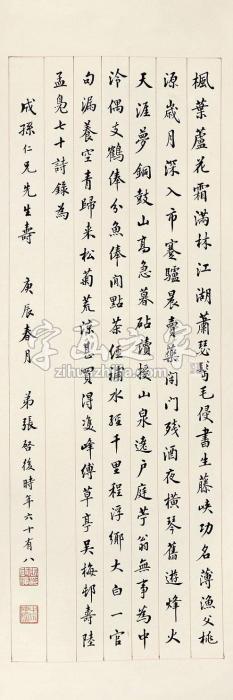 楓葉蘆花霜滿林江湖蕭瑟髩毛侵書生藤峽功名薄漁父桃
源歲月深入市蹇驢晨賣藥閉門殘酒夜橫琴舊遊烽火
天涯夢銅鼓山高急暮砧讀授山泉遶戶庭苧翁無事為中
泠偶支鶴俸分魚俸閒點茶經補水經千里程浮鄉大白一官
句漏養空青歸来松菊荒涼甚買得凌峰縛草亭吳梅邨壽陸
孟鳧七十詩錄為
成孫仁兄先生壽 庚辰春月 弟張啓後時年六十有八
字画之家
zihuazhijia.com